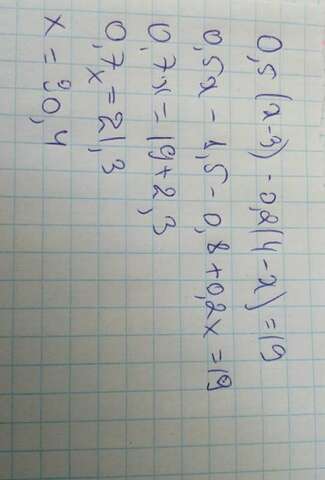 0,5(x-3)-0,2(4-x)=19
0,5x-1,5-0,8+0,2x=19
0,7x=19+2,3
0,7x=21,3
x=30,4